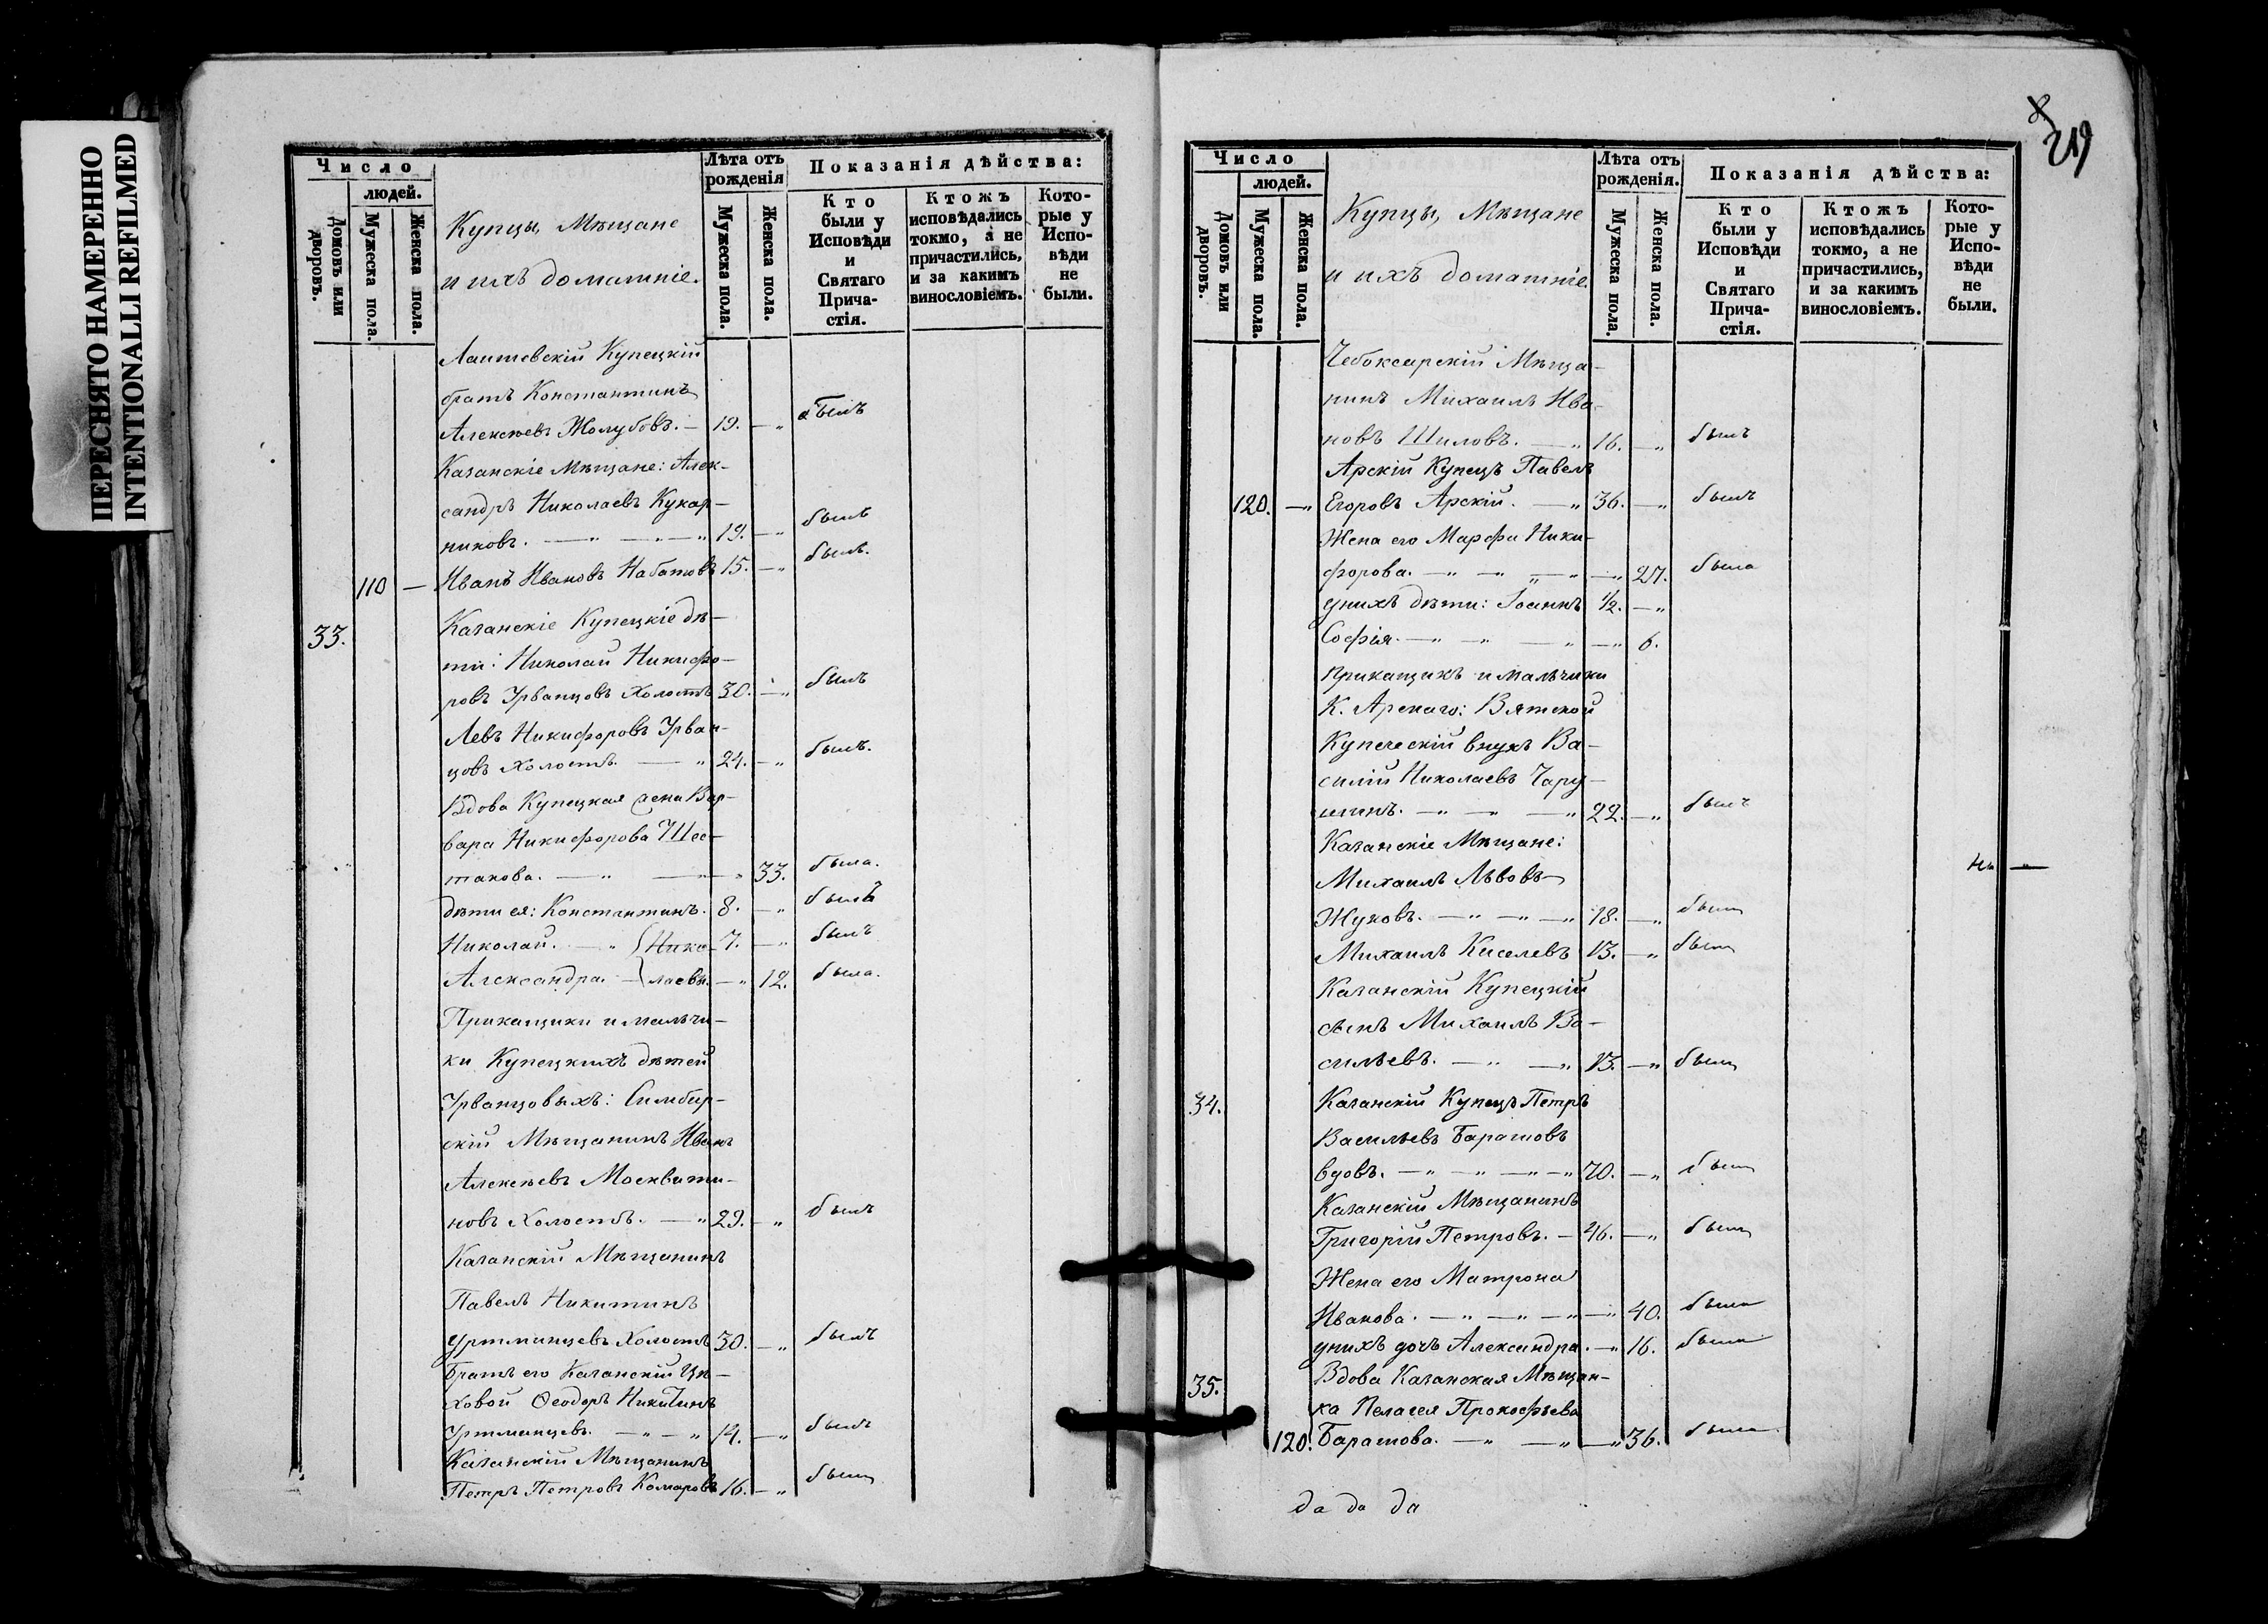 ПЕРЕСНЯТО НАМЕРЕННО
INTENTIONALLI REFILMED
Число
людей.
Домовъ или дворовъ.
Мужеска пола.
Женска пола.
Купцы, Мѣщане
и ихъ домашніе.
Лѣта отъ
рожденія
Мужеска пола.
Женска пола.
Показанія дѣйства:
Кто
были у
Исповѣди
и
Святаго
Прича-
стія.
Ктожъ
исповѣдались
токмо, а не
причастились,
и за какимъ
винословіемъ.
Кото-
рые у
Испо-
вѣди
не
были.
Лаишевскій Купецкій
братъ Константинъ
Алексѣевъ Жолубовъ. — 19. — " былъ
Казанскіе Мѣщане: Алек-
сандръ Николаевъ Кукар-
никовъ. — " — " — " 19. — " былъ
110 — Иванъ Ивановъ Набатовъ 15. — " былъ.
33. Казанскіе Купецкіе дѣ-
ти: Николай Никифо-
ровъ Урванцовъ холостъ 30. — " былъ
Левъ Никифоровъ Урван-
цовъ холостъ. — " 24. — " былъ.
Вдова Купецкая жена Вар-
вара Никифорова Шес-
такова. — " — " — " 33. была.
дѣти ея: Константинъ. 8. — " былъ
Николай. — " Нико- 7. — " былъ
Александра. — лаевы. — " 12. была.
Прикащики и мальчи-
ки Купецкихъ дѣтей
Урванцовыхъ: Симбир-
скій Мѣщанинъ Иванъ
Алексѣевъ Москвити-
новъ холостъ. — " 29. — " былъ
Казанскій Мѣщанинъ
Павелъ Никитинъ
Уртминцевъ холостъ 30. — " былъ
Братъ его Казанскій Цѣ-
ховой Ѳеодоръ Никитинъ
Уртминцевъ. — " — " 14. — " былъ
Казанскій Мѣщанинъ
Петръ Петровъ Комаровъ 16. — " былъ
219
Число
людей.
Домовъ или дворовъ.
Мужеска пола.
Женска пола.
Купцы, Мѣщане
и ихъ домашніе
Лѣта отъ
рожденія.
Мужеска пола.
Женска пола.
Показанія дѣйства:
Кто
были у
Исповѣди
и
Святаго
Прича-
стія.
Ктожъ
исповѣдались
токмо, а не
причастились,
и за какимъ
винословіемъ.
Кото-
рые у
Испо-
вѣди
не
были.
Чебоксарскій Мѣща-
нинъ Михаилъ Ива-
новъ Шиловъ. — " 16. — " былъ
Арскій Купецъ Павелъ
120. — " Егоровъ Арскій. — " 36. — " былъ
Жена его Марфа Ники-
форова. — " — " — " — " 27. была
у нихъ дѣти: Іоаннъ 1/2. — "
Софія. — " — " — " — " 6.
Прикащикъ и мальчики
К. Арскаго: Вятской
Купеческій внукъ Ва-
силій Николаевъ Чару-
шинъ. — " — " — " 22. — " былъ
Казанскіе Мѣщане:
Михаилъ Львовъ
Жуковъ. — " — " — " 18. — " былъ
Михаилъ Киселевъ 13. — " былъ
Казанскій Купецкій
сынъ Михаилъ Ва-
сильевъ. — " — " 13. — " былъ
34. Казанскій Купецъ Петръ
Васильевъ Баратовъ
вдовъ. — " — " — " — " 70. — " былъ
Казанскій Мѣщанинъ
Григорій Петровъ. — 46. — " былъ
Жена его Матрона
Иванова. — " — " — " — " 40. была
у нихъ дочь Александра. — " 16. была
35. Вдова Казанская Мѣщан-
ка Пелагея Прокофьева
120. Баратова. — " — " — " 36. была
да да да